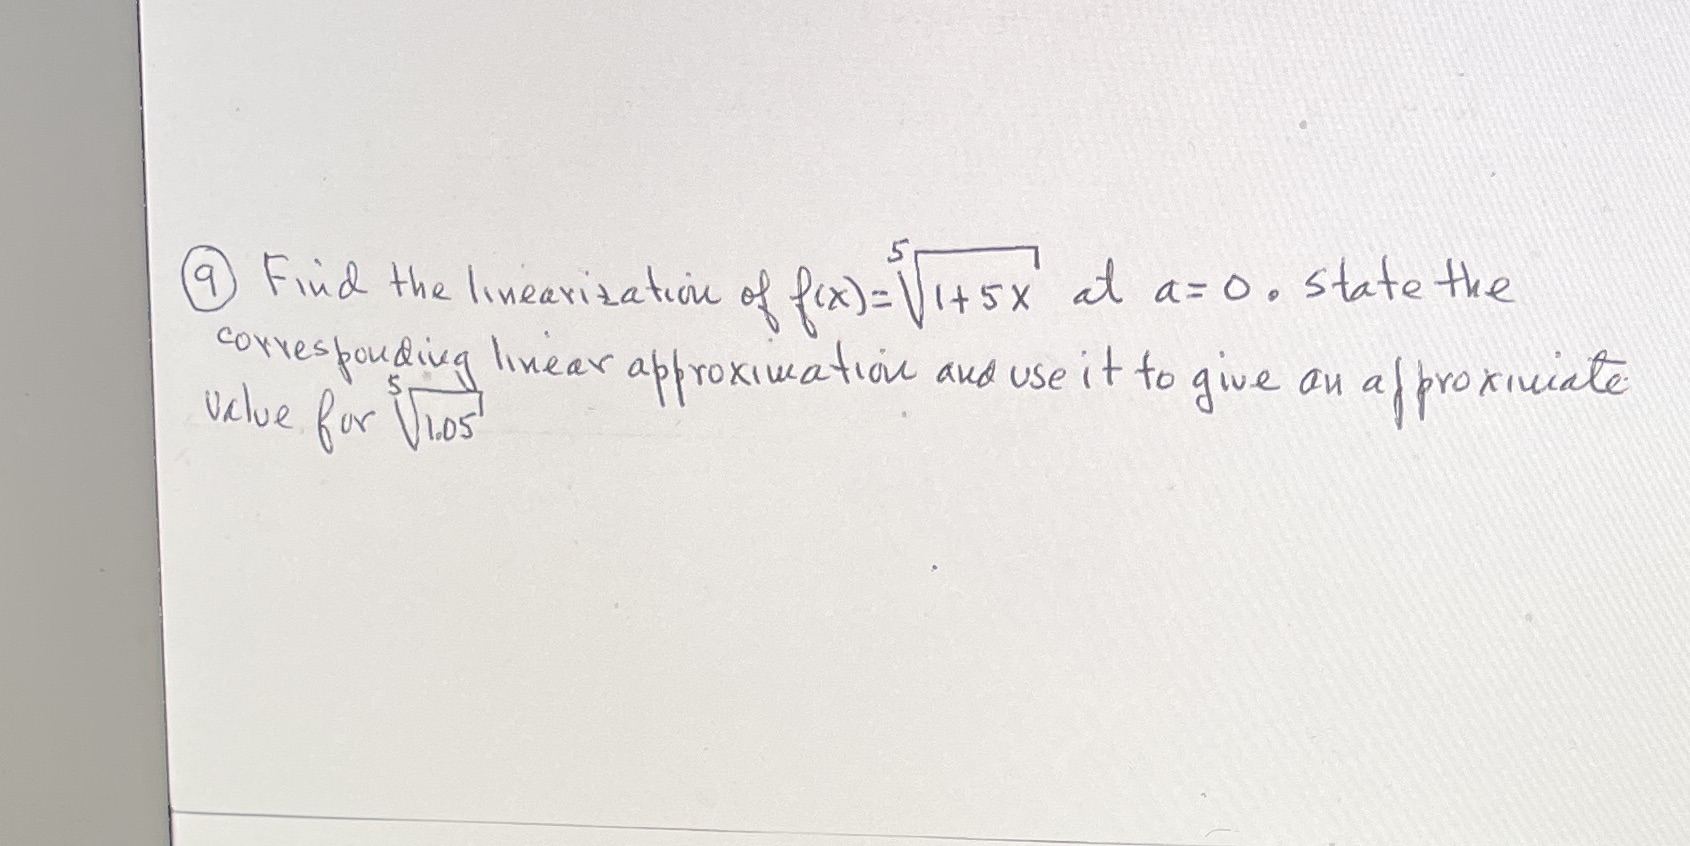 ⑨ Find the linearization of f(x)=⁵√1+5x at a=0. state the
corresponding linear approximation and use it to give an approximiate
value for ⁵√1.05